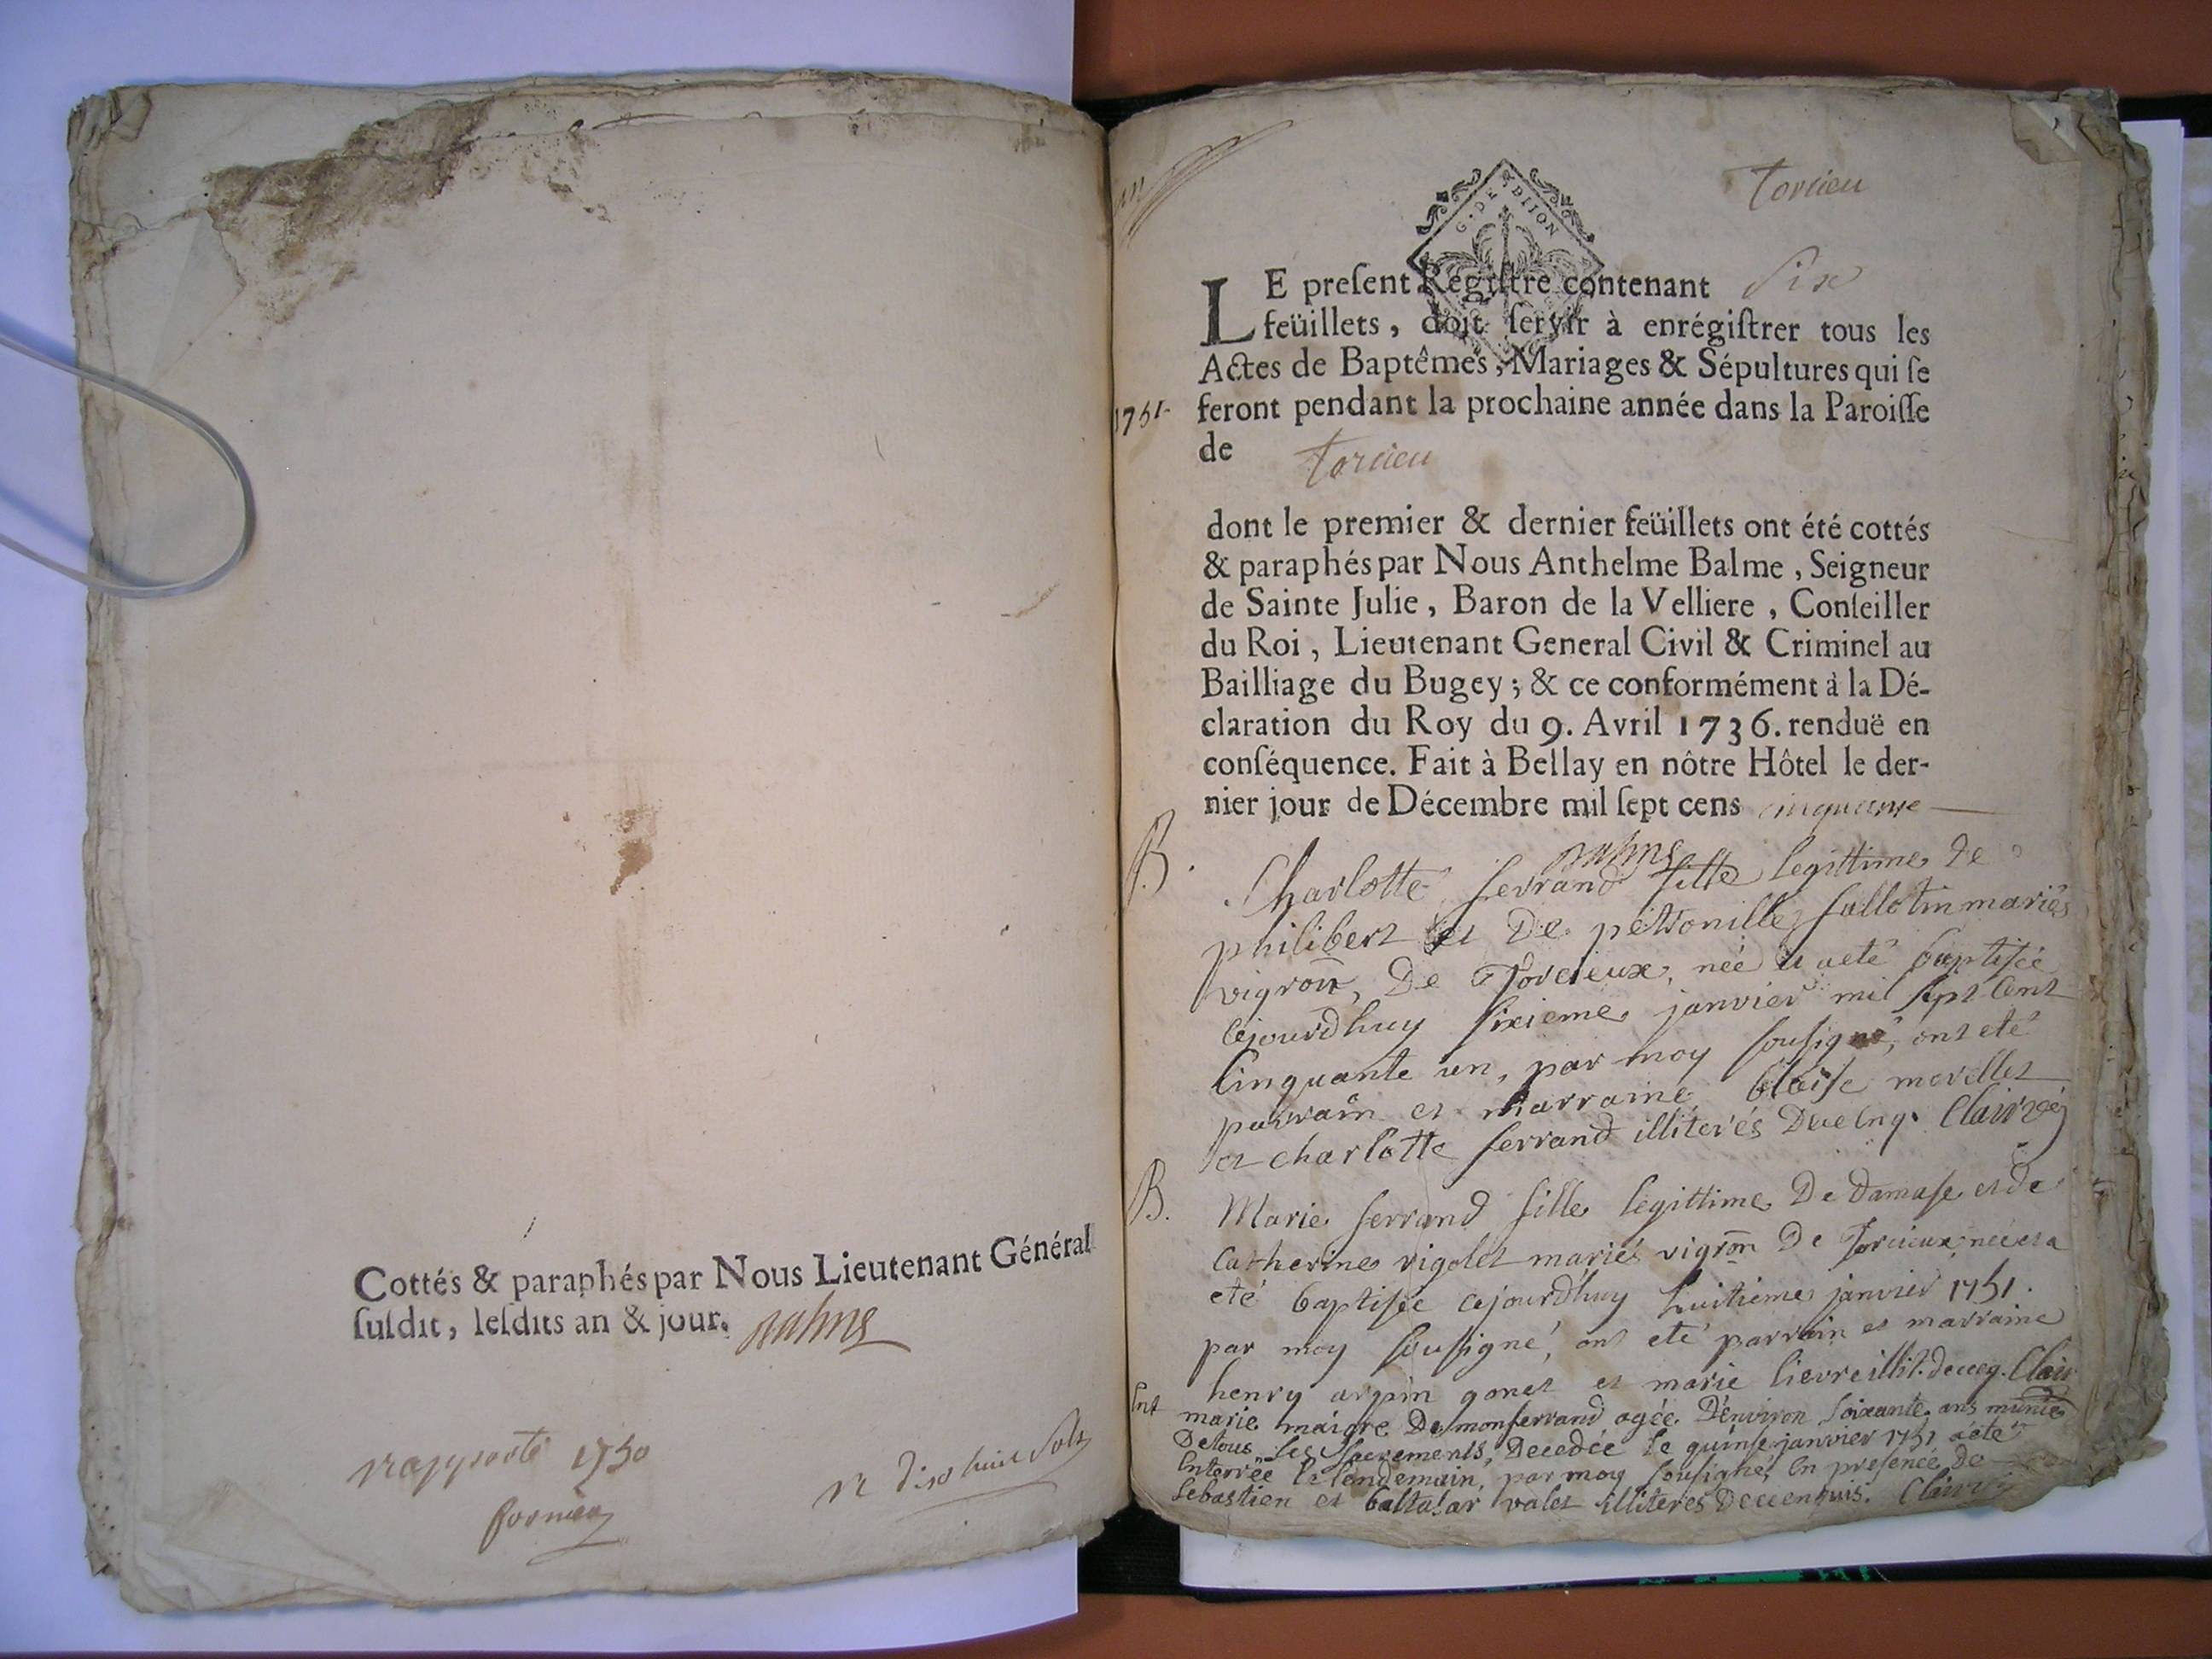 Cottés & paraphés par Nous Lieutenant Général
susdit, lesdits an & jour. Balme
rapporté 1750
fornier
R dix huit sols
Torcieu
G. DE DIJON
LE preſent Régiſtre contenant Six
feüillets, doit ſervir à enrégiſtrer tous les
Actes de Baptêmes, Mariages & Sépultures qui ſe
1751. feront pendant la prochaine année dans la Paroiſſe
de Torcieu
dont le premier & dernier feüillets ont été cottés
& paraphés par Nous Anthelme Balme, Seigneur
de Sainte Julie, Baron de la Velliere, Conſeiller
du Roi, Lieutenant General Civil & Criminel au
Bailliage du Bugey; & ce conformément à la Dé-
claration du Roy du 9. Avril 1736. renduë en
conſéquence. Fait à Bellay en nôtre Hôtel le der-
nier jour de Décembre mil ſept cens cinquante
Balme
B. Charlotte ferrand fille legittime de
philibert et De petronille fallotin mariés
vigron, De Torcieux, née et a eté baptisée
cejourdhuy sixieme janvier mil sept cent
cinquante un, par moy sousigné, ont eté
parrain et marraine blaise morellet
et charlotte ferrand illiterés Due Enq. Clairet
B. Marie ferrand fille legittime De damase et de
catherine rigolet mariés vigron De Torcieux, née et a
eté baptisée cejourdhuy huitieme janvier 1751.
par moy sousigné, ont eté parrain et marraine
henry arpin gonet et marie lievre illit. deueeq. Clair
Ent marie maigre De monferrand agée D'environ soixante ans munie
De tous les Sacrements, Decedée le quinse janvier 1751 a eté
Enterrée le lendemain, par moy sousigné, En presence de
sebastien et baltasar valet illiteres Deuenquis.